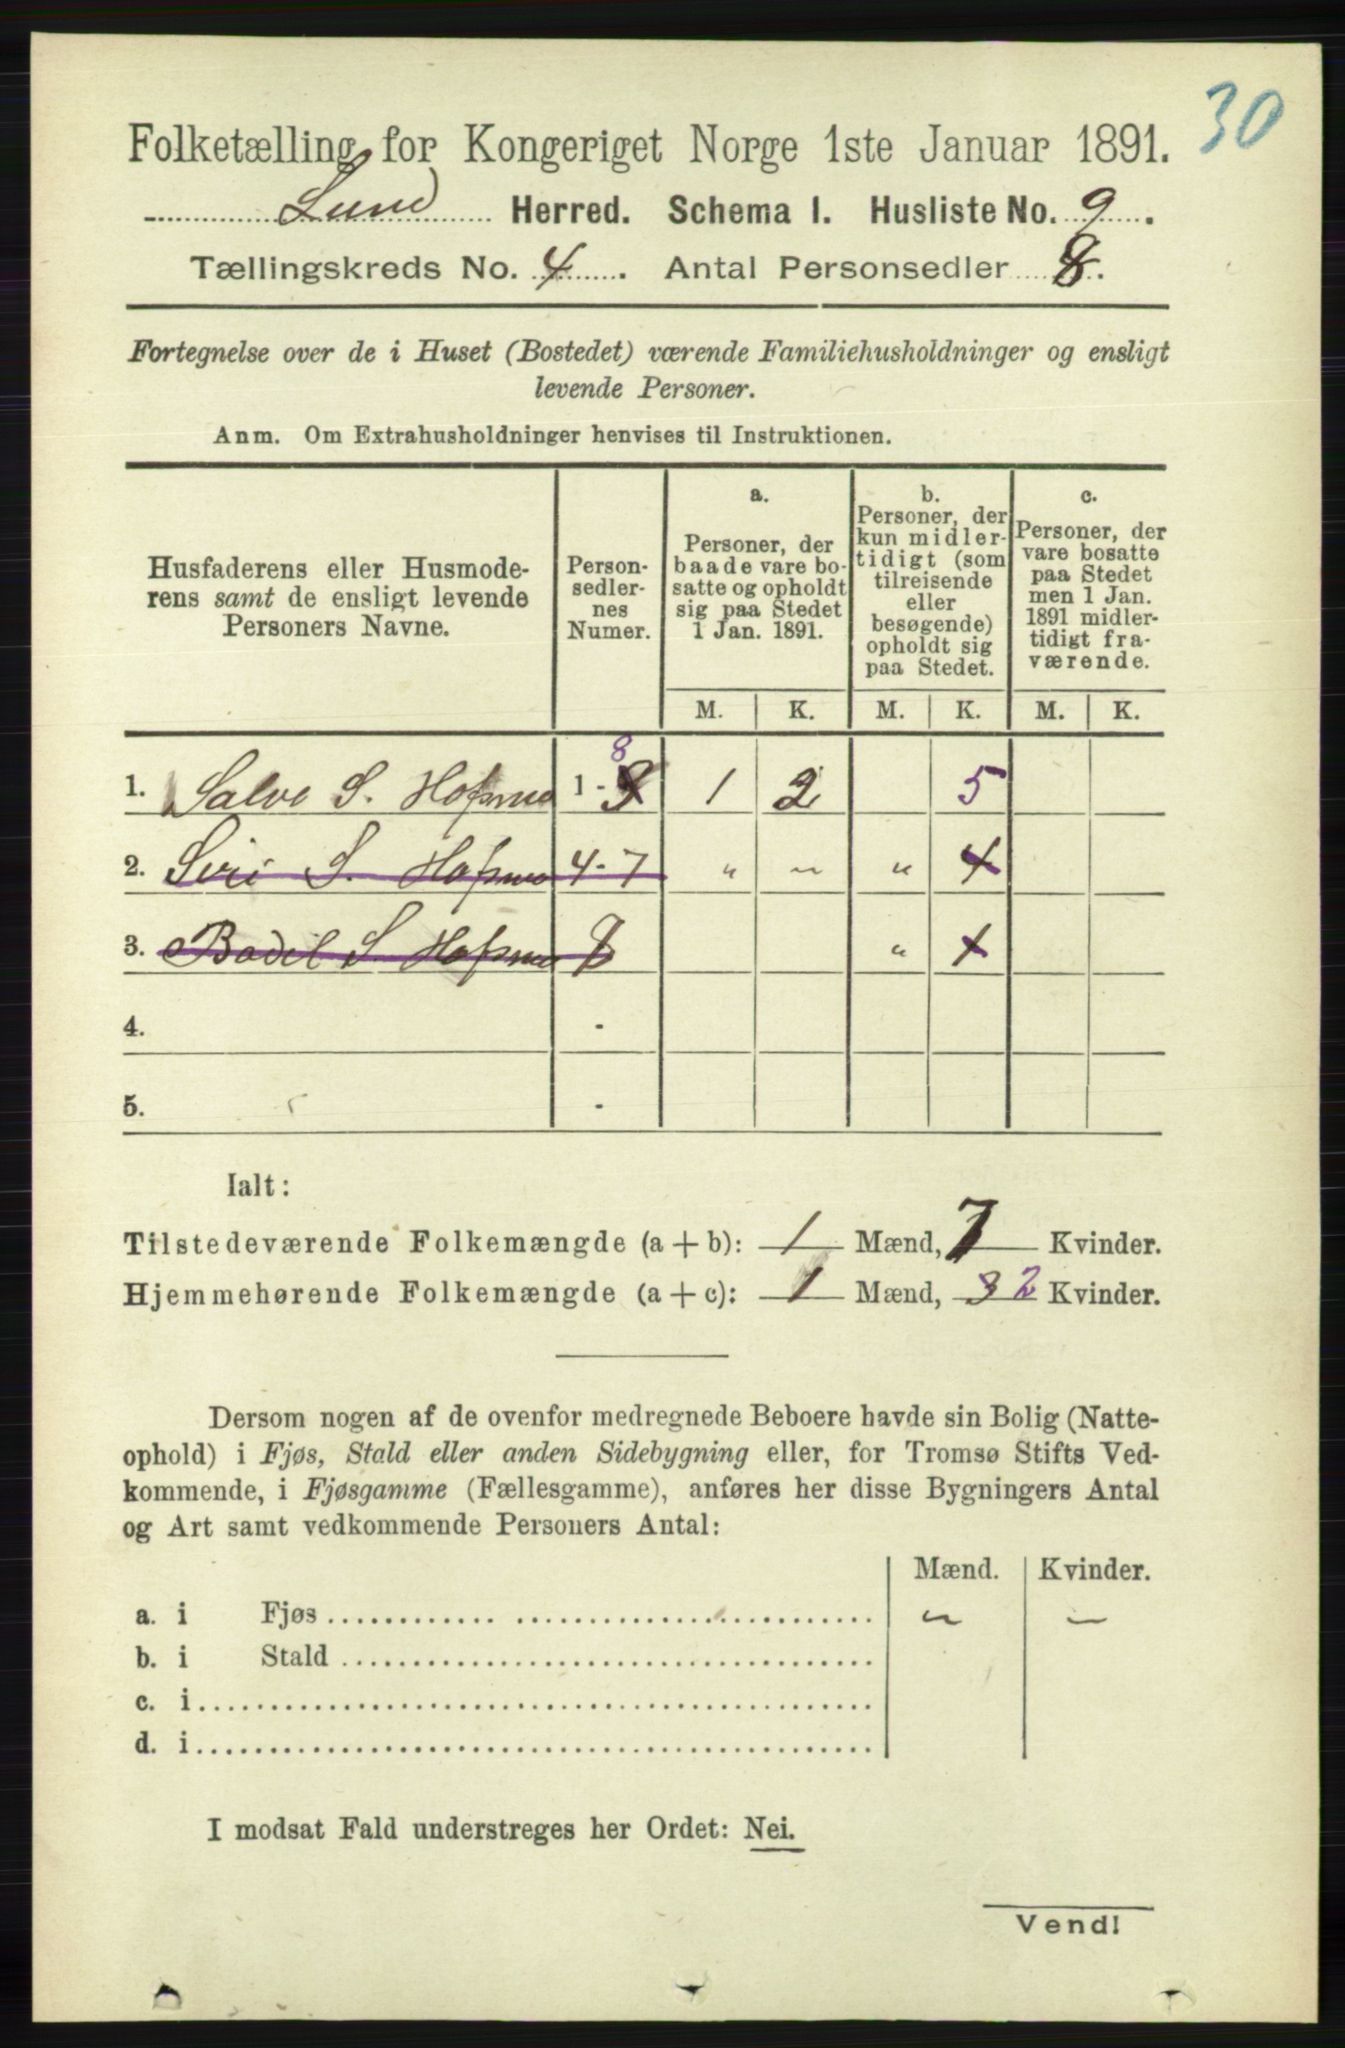 30
Folketælling for Kongeriget Norge 1ste Januar 1891.
Lund Herred. Schema I. Husliste No. 9.
Tællingskreds No. 4. Antal Personsedler 8.
Fortegnelse over de i Huset (Bostedet) værende Familiehusholdninger og ensligt
levende Personer.
Anm. Om Extrahusholdninger henvises til Instruktionen.
Husfaderens eller Husmode-
rens samt de ensligt levende
Personers Navne.
Person-
sedler-
nes
Numer.
a.
Personer, der
baade vare bo-
satte og opholdt
sig paa Stedet
1 Jan. 1891.
b.
Personer, der
kun midler-
tidigt (som
tilreisende
eller
besøgende)
opholdt sig
paa Stedet.
c.
Personer, der
vare bosatte
paa Stedet
men 1 Jan.
1891 midler-
tidigt fra-
værende.
M. K. M. K. M. K.
1. Salve S. Hofsmo 1 - 8 1 2 5
2. Siri S. Hofsmo 4 - 7 " " " 4
3. Bodil S. Hofsmo 8 " 1
4. -
5. -
Ialt:
Tilstedeværende Folkemængde (a + b): 1 Mænd, 7 Kvinder.
Hjemmehørende Folkemængde (a + c): 1 Mænd, 3 2 Kvinder.
Dersom nogen af de ovenfor medregnede Beboere havde sin Bolig (Natte-
ophold) i Fjøs, Stald eller anden Sidebygning eller, for Tromsø Stifts Ved-
kommende, i Fjøsgamme (Fællesgamme), anføres her disse Bygningers Antal
og Art samt vedkommende Personers Antal:
Mænd. Kvinder.
a. i Fjøs " -
b. i Stald
c. i
d. i
I modsat Fald understreges her Ordet: Nei.
Vend!